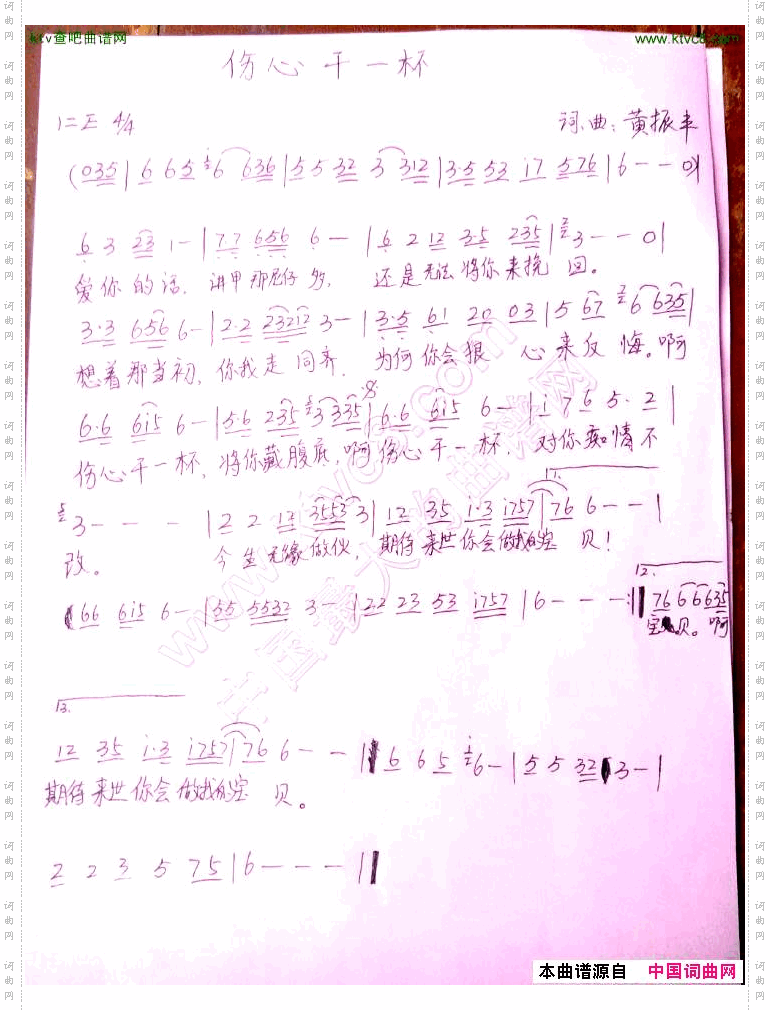 ktv查吧曲谱网 www.ktvc8.com
伤心干一杯
1=E 4/4 词、曲:黄振丰
(035|6 65 6 636|55 32 3 312|3·5 53 i7 576|6 - - 0)|
6 3 23 1 -|7·7 656 6 -|6 2 12 3·5 235|3 - - 0|
爱你的话,讲甲那尼仔多, 还是无法将你来挽回。
3·3 656 6 -|2·2 23212 3 -|3·5 61 20 03|5 67 6 635|
想着那当初,你我走同齐, 为何你会狠 心来反悔。啊
6·6 6i5 6 -|5·6 235 3 335|6·6 6i5 6 -|i 7 6 5· 2|
伤心干一杯,将你藏腹底,啊伤心干一杯, 对你痴情不
1.
3 - - -|2 2 12 3553 3|12 35 i·3 i757|76 6 - -|
改。 今生无缘做伙, 期待来世你会做我的宝 贝!
2.
66 6i5 6 -|55 5532 3 -|22 23 53 i757|6 - - -:|76 6 6635
宝贝。啊
3.
12 35 i·3 i757|76 6 - -|6 6 5 6 -|5 5 32 3 -|
期待来世你会做我的宝 贝。
2 2 3 5 75|6 - - -||
本曲谱源自 中国词曲网